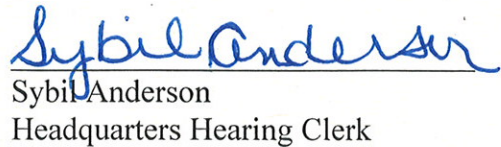 Sybil Anderson
Sybil Anderson
Headquarters Hearing Clerk